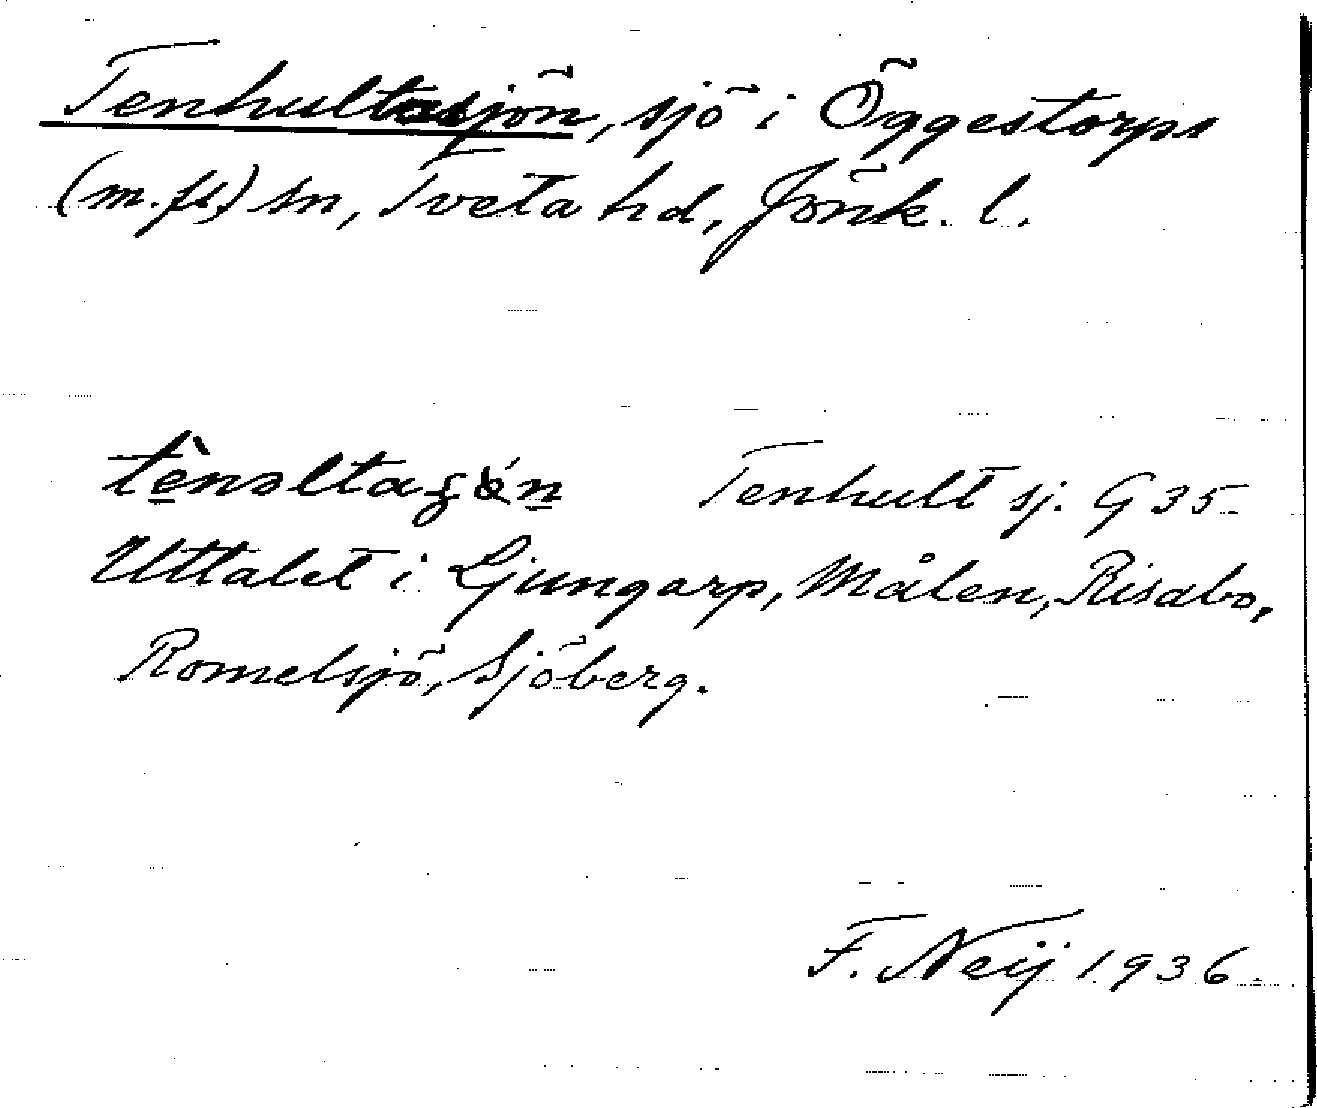 Tenhultasjön, sjö i Öggestorps
(m.fl.) sn, Tveta hd, Jönk. l.
Tenhult sj. G 35
Uttalet i Ljungarp, Målen, Risabo,
Romelsjö, Sjöberg.
F. Neij 1936